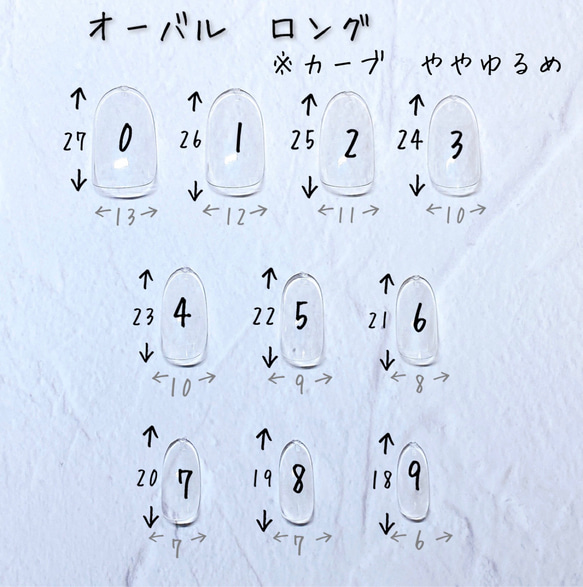 オーバル ロング
※カーブ ややゆるめ
↑ ↑ ↑ ↑
27 0 26 1 25 2 24 3
↓ ↓ ↓ ↓
←13→ ←12→ ←11→ ←10→
↑ ↑ ↑
23 4 22 5 21 6
↓ ↓ ↓
←10→ ←9→ ←8→
↑ ↑ ↑
20 7 19 8 18 9
↓ ↓ ↓
←7→ ←7→ ←6→